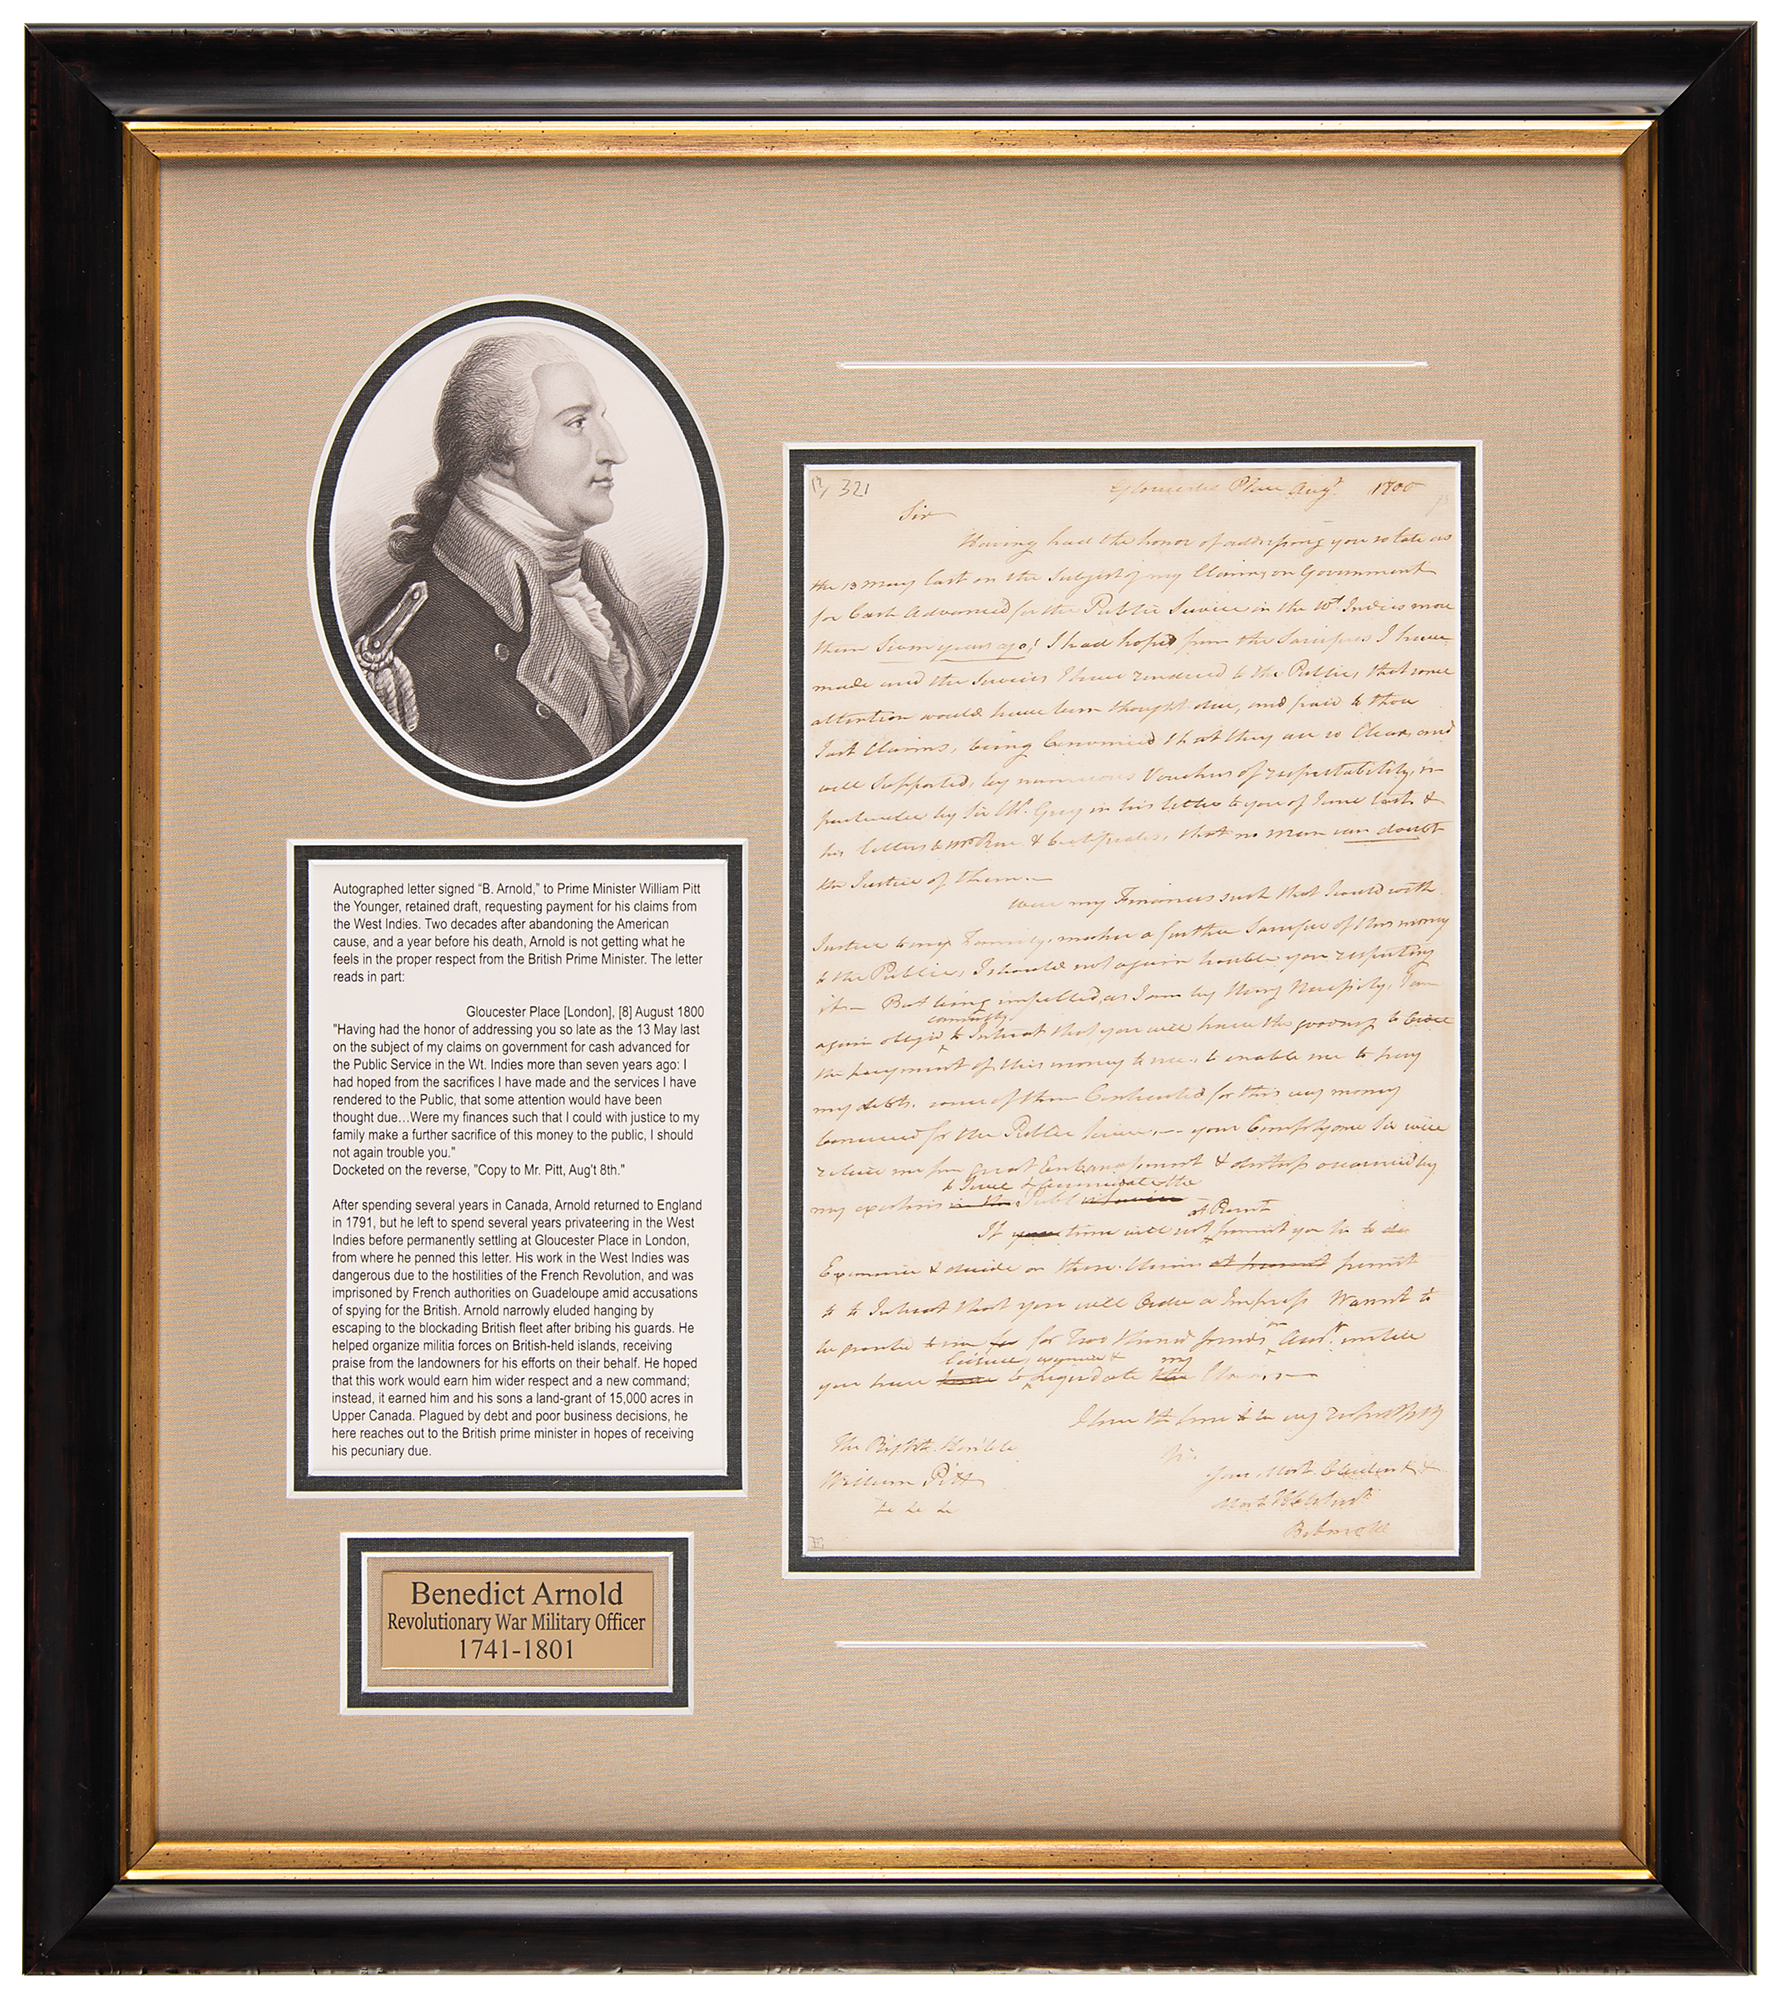 Autographed letter signed “B. Arnold,” to Prime Minister William Pitt
the Younger, retained draft, requesting payment for his claims from
the West Indies. Two decades after abandoning the American
cause, and a year before his death, Arnold is not getting what he
feels in the proper respect from the British Prime Minister. The letter
reads in part:
Gloucester Place [London], [8] August 1800
"Having had the honor of addressing you so late as the 13 May last
on the subject of my claims on government for cash advanced for
the Public Service in the Wt. Indies more than seven years ago: I
had hoped from the sacrifices I have made and the services I have
rendered to the Public, that some attention would have been
thought due…Were my finances such that I could with justice to my
family make a further sacrifice of this money to the public, I should
not again trouble you."
Docketed on the reverse, "Copy to Mr. Pitt, Aug't 8th."
After spending several years in Canada, Arnold returned to England
in 1791, but he left to spend several years privateering in the West
Indies before permanently settling at Gloucester Place in London,
from where he penned this letter. His work in the West Indies was
dangerous due to the hostilities of the French Revolution, and was
imprisoned by French authorities on Guadeloupe amid accusations
of spying for the British. Arnold narrowly eluded hanging by
escaping to the blockading British fleet after bribing his guards. He
helped organize militia forces on British-held islands, receiving
praise from the landowners for his efforts on their behalf. He hoped
that this work would earn him wider respect and a new command;
instead, it earned him and his sons a land-grant of 15,000 acres in
Upper Canada. Plagued by debt and poor business decisions, he
here reaches out to the British prime minister in hopes of receiving
his pecuniary due.
Benedict Arnold
Revolutionary War Military Officer
1741-1801
321
Gloucester Place Augt. 1800
Sir
Having had the honor of addressing you so late as
the 13 May last on the Subject of my Claims on Government
for Cash Advanced for the Public Service in the Wt. Indies more
than Seven years ago! I had hoped from the Sacrifices I have
made and the Services I have rendered to the Public, that some
attention would have been thought due, and paid to those
Just Claims, being Convinced that they are so Clear, and
well Supported, by numerous Vouchers of respectability, in
particular by Sir Ch. Grey in his letter to you of June last &
his letters to Mr Rose & Certificates, that no man can doubt
the Justice of them.—
were my Finances such that I could with
Justice to my Family, make a further Sacrifice of this money
to the Public, I should not again trouble you respecting
it— But being impelled, as I am by Strong Necessity, I am
again obliged to Intreat that you will have the goodness to order
the payment of this money to me, to enable me to pay
my debts, some of them Contracted for this very money
for the Public Service,— your Compliance Sir will
relieve me from great Embarrassment & distress occasioned by
my exertions to Serve the Public
If your time will not at Present permit you Sir to
Examine & decide on these Claims at present permit
to Intreat that you will Order a Impress Warrant to
be granted to me for Two thousand pounds on Acct. untill
you have leisure to examine & Liquidate my Claims.—
I have the honor to be very respectfully
Sir
Your Most Obedient &
Most Hble Servt.
B. Arnold
The Right Honble
William Pitt
&c &c &c